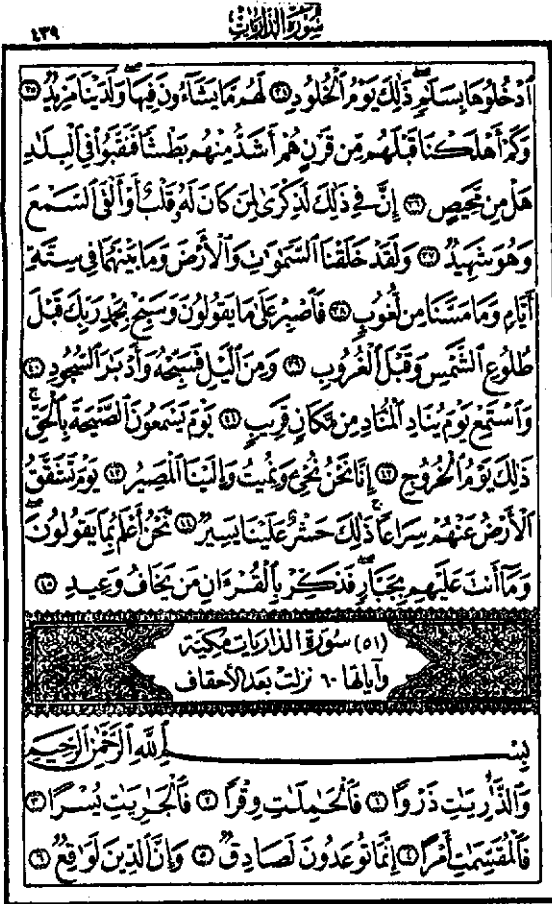 سورة الذاريات
٤٣٩
ٱدْخُلُوهَا بِسَلَٰمٍ ذَٰلِكَ يَوْمُ ٱلْخُلُودِ ﴿٣٤﴾ لَهُم مَّا يَشَآءُونَ فِيهَا وَلَدَيْنَا مَزِيدٌ ﴿٣٥﴾
وَكَمْ أَهْلَكْنَا قَبْلَهُم مِّن قَرْنٍ هُمْ أَشَدُّ مِنْهُم بَطْشًا فَنَقَّبُوا۟ فِى ٱلْبِلَٰدِ
هَلْ مِن مَّحِيصٍ ﴿٣٦﴾ إِنَّ فِى ذَٰلِكَ لَذِكْرَىٰ لِمَن كَانَ لَهُۥ قَلْبٌ أَوْ أَلْقَى ٱلسَّمْعَ
وَهُوَ شَهِيدٌ ﴿٣٧﴾ وَلَقَدْ خَلَقْنَا ٱلسَّمَٰوَٰتِ وَٱلْأَرْضَ وَمَا بَيْنَهُمَا فِى سِتَّةِ
أَيَّامٍ وَمَا مَسَّنَا مِن لُّغُوبٍ ﴿٣٨﴾ فَٱصْبِرْ عَلَىٰ مَا يَقُولُونَ وَسَبِّحْ بِحَمْدِ رَبِّكَ قَبْلَ
طُلُوعِ ٱلشَّمْسِ وَقَبْلَ ٱلْغُرُوبِ ﴿٣٩﴾ وَمِنَ ٱلَّيْلِ فَسَبِّحْهُ وَأَدْبَٰرَ ٱلسُّجُودِ ﴿٤٠﴾
وَٱسْتَمِعْ يَوْمَ يُنَادِ ٱلْمُنَادِ مِن مَّكَانٍ قَرِيبٍ ﴿٤١﴾ يَوْمَ يَسْمَعُونَ ٱلصَّيْحَةَ بِٱلْحَقِّ
ذَٰلِكَ يَوْمُ ٱلْخُرُوجِ ﴿٤٢﴾ إِنَّا نَحْنُ نُحْىِۦ وَنُمِيتُ وَإِلَيْنَا ٱلْمَصِيرُ ﴿٤٣﴾ يَوْمَ تَشَقَّقُ
ٱلْأَرْضُ عَنْهُمْ سِرَاعًا ذَٰلِكَ حَشْرٌ عَلَيْنَا يَسِيرٌ ﴿٤٤﴾ نَّحْنُ أَعْلَمُ بِمَا يَقُولُونَ
وَمَآ أَنتَ عَلَيْهِم بِجَبَّارٍ فَذَكِّرْ بِٱلْقُرْءَانِ مَن يَخَافُ وَعِيدِ ﴿٤٥﴾
(٥١) سورة الذاريات مكية
وآياتها ٦٠ نزلت بعد الأحقاف
بِسْمِ ٱللَّهِ ٱلرَّحْمَٰنِ ٱلرَّحِيمِ
وَٱلذَّٰرِيَٰتِ ذَرْوًا ﴿١﴾ فَٱلْحَٰمِلَٰتِ وِقْرًا ﴿٢﴾ فَٱلْجَٰرِيَٰتِ يُسْرًا ﴿٣﴾
فَٱلْمُقَسِّمَٰتِ أَمْرًا ﴿٤﴾ إِنَّمَا تُوعَدُونَ لَصَادِقٌ ﴿٥﴾ وَإِنَّ ٱلدِّينَ لَوَٰقِعٌ ﴿٦﴾